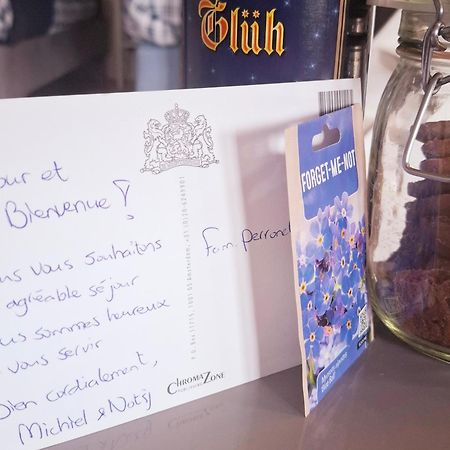 Glüh
our et
Bienvenue!
us vous souhaitons
agréable séjour
us sommes heureux
vous servir
bien cordialement,
Michiel & Notsj
Fam. Perron
CHROMAZONE
FORGET-ME-NOT